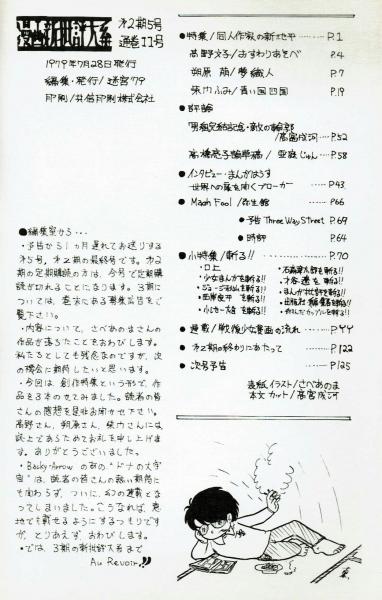 漫画新批評大系
第2期5号
通巻11号
1979年7月28日発行
編集・発行/迷宮'79
印刷/共信印刷株式会社
●編集室から…
・予告から1ヵ月遅れてお送りする
第5号，第2期の最終号です。第2
期の定期購読の方は、今号で定期購
読が切れることになります。3期に
ついては、巻末にある募集広告をご
覧下さい。
・内容について。さべあのまさんの
作品が落ちたことをおわびします。
私たちとしても残念なのですが、次
の機会に期待したいと思います。
・今回は、創作特集という形で、作
品を3本のせてみました。読者の皆
さんの感想を是非お聞かせ下さい。
高野さん、朔原さん、柴門さんには
誌上であらためてお礼を申し上げま
す。ありがとうございました。
・Backy-Arrowの
は、読者の皆さんの熱い期待に
も関わらず、ついに、幻の連載とな
ってしまいました。こうなれば、意
地でも載せるようにするつもりです
が、とりあえず、おわびします。
・では、3期の新批評大系まで
Au Revoir!!
●特集/同人作家の新地平 …… P.1
高野文子/おすわりあそべ P.4
朔原 萠/夢織人 P.7
柴門ふみ/青い四国 P.19
●評論
/高宮成河 …P.52
/亜庭じゅん…P.58
●インタビュー・まんがはうす
世界への扉を開くブローカー …P.43
●Mach Fool/弥生館 P.66
●予告 Three Way Street P.69
●時評 P.64
●小特集/斬る!! P.70
・口上
・少女まんがを斬る!!
・ジョージ秋山を斬る!!
・西岸良平を斬る!!
・石森章太郎を斬る!!
・まんが批評を斬る!!
●連載/戦後少女漫画の流れ …P.99
●第2期の終わりにあたって …P.122
●次号予告 …P.125
表紙イラスト/さべあのま
本文カット/高宮成河